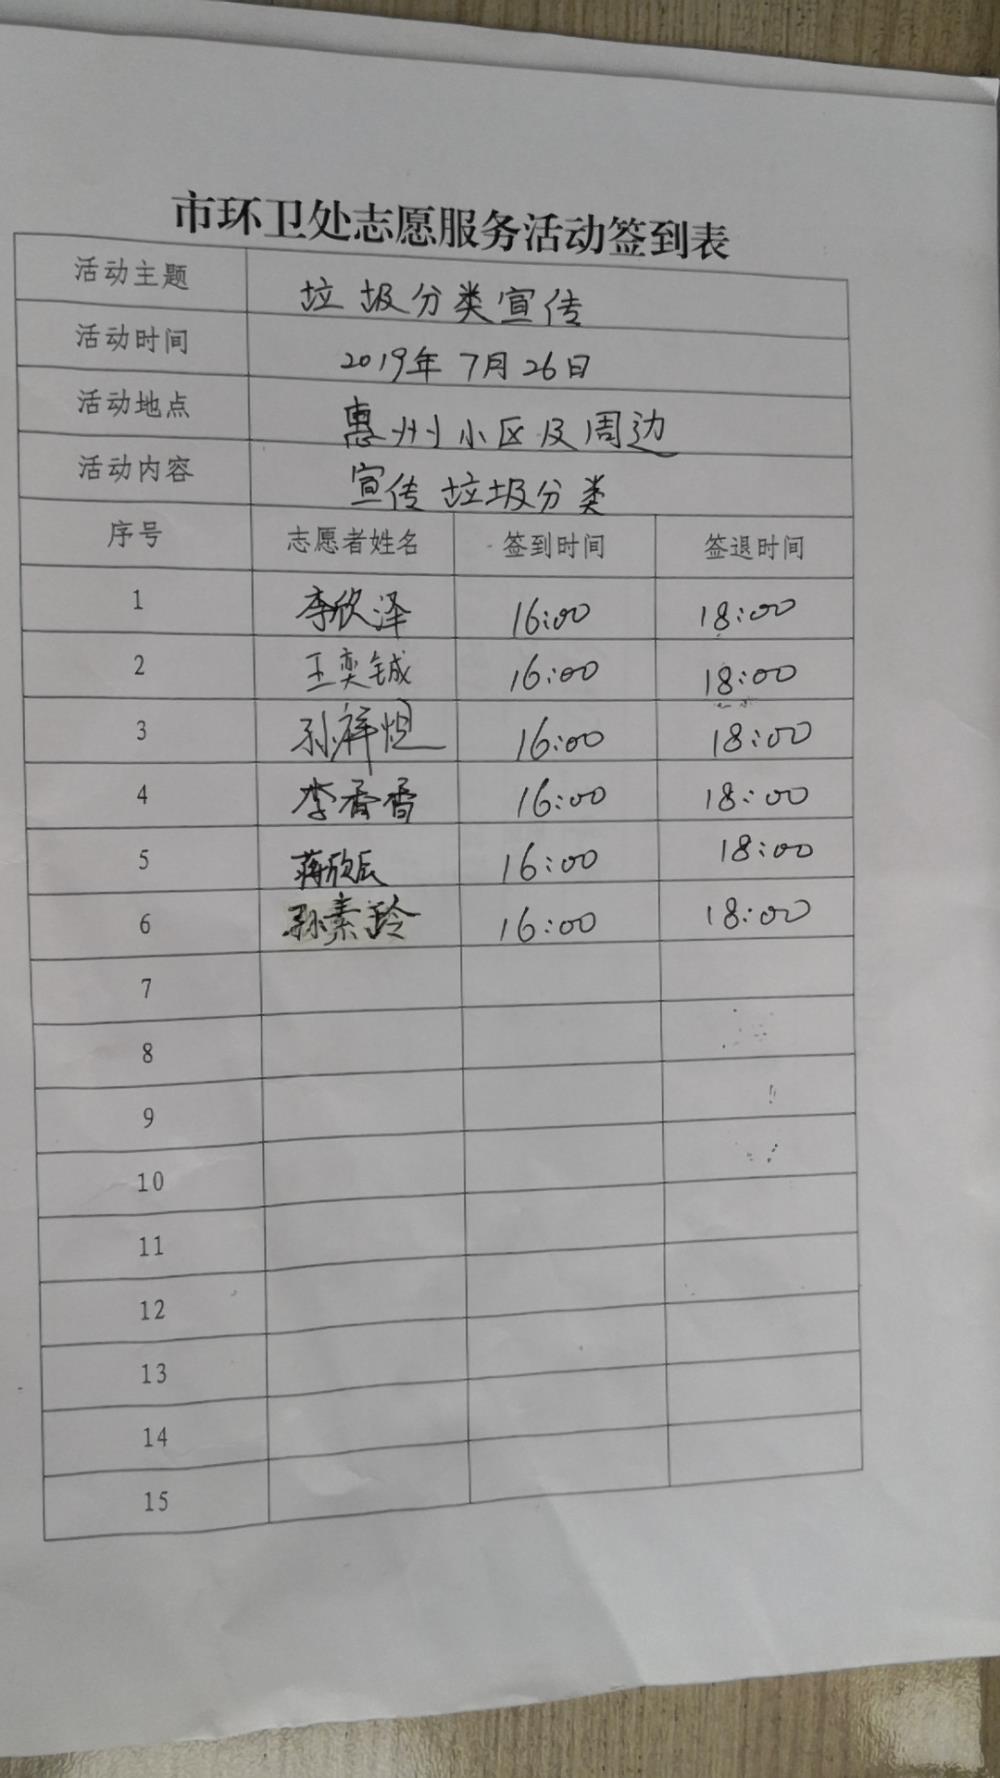 市环卫处志愿服务活动签到表
活动主题 垃圾分类宣传
活动时间 2019年7月26日
活动地点 惠州小区及周边
活动内容 宣传垃圾分类
序号 志愿者姓名 签到时间 签退时间
1 李欣泽 16:00 18:00
2 王奕铖 16:00 18:00
3 孙祥恺 16:00 18:00
4 李香香 16:00 18:00
5 蒋欣辰 16:00 18:00
6 孙素玲 16:00 18:00
7
8
9
10
11
12
13
14
15